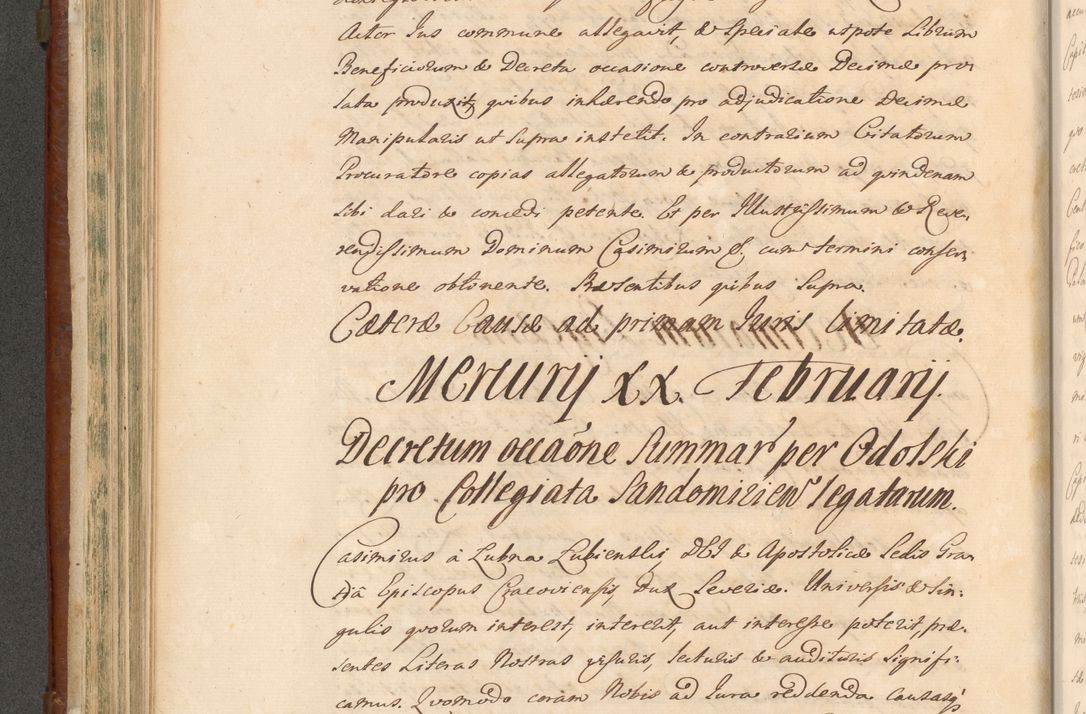 Actor Jus commune allegavit, & speciale utpote Librum
Beneficiorum & Decreta occasione controversæ Decimæ pro-
lata produxit, quibus inhærendo pro adjudicatione Decimæ
Manipularis ut supra institit. In contrarium Citatorum
Procuratore copias allegatorum & productorum ad quindenam
sibi dari & concedi petente. Et per Illustrissimum & Reve-
rendissimum Dominum Casimirum &, cum termini conser-
vatione obtinente. Præsentibus quibus supra.
Cæteræ Causæ ad primam Juris limitatæ.
Mercurij XX. Februarij.
Decretum occaõne Summar' per Odolski
pro Collegiata Sandomirien' legatarum.
Casimirus à Lubna Lubienski, DEI & Apostolicæ Sedis Gra-
tiâ Episcopus Cracoviensis, Dux Severiæ. Universis & Sin-
gulis quorum interest, intererit, aut interesse poterit, præ-
sentes Literas Nostras visuris, lecturis & audituris signifi-
camus. Quomodo coram Nobis ad Jura reddenda causasq'